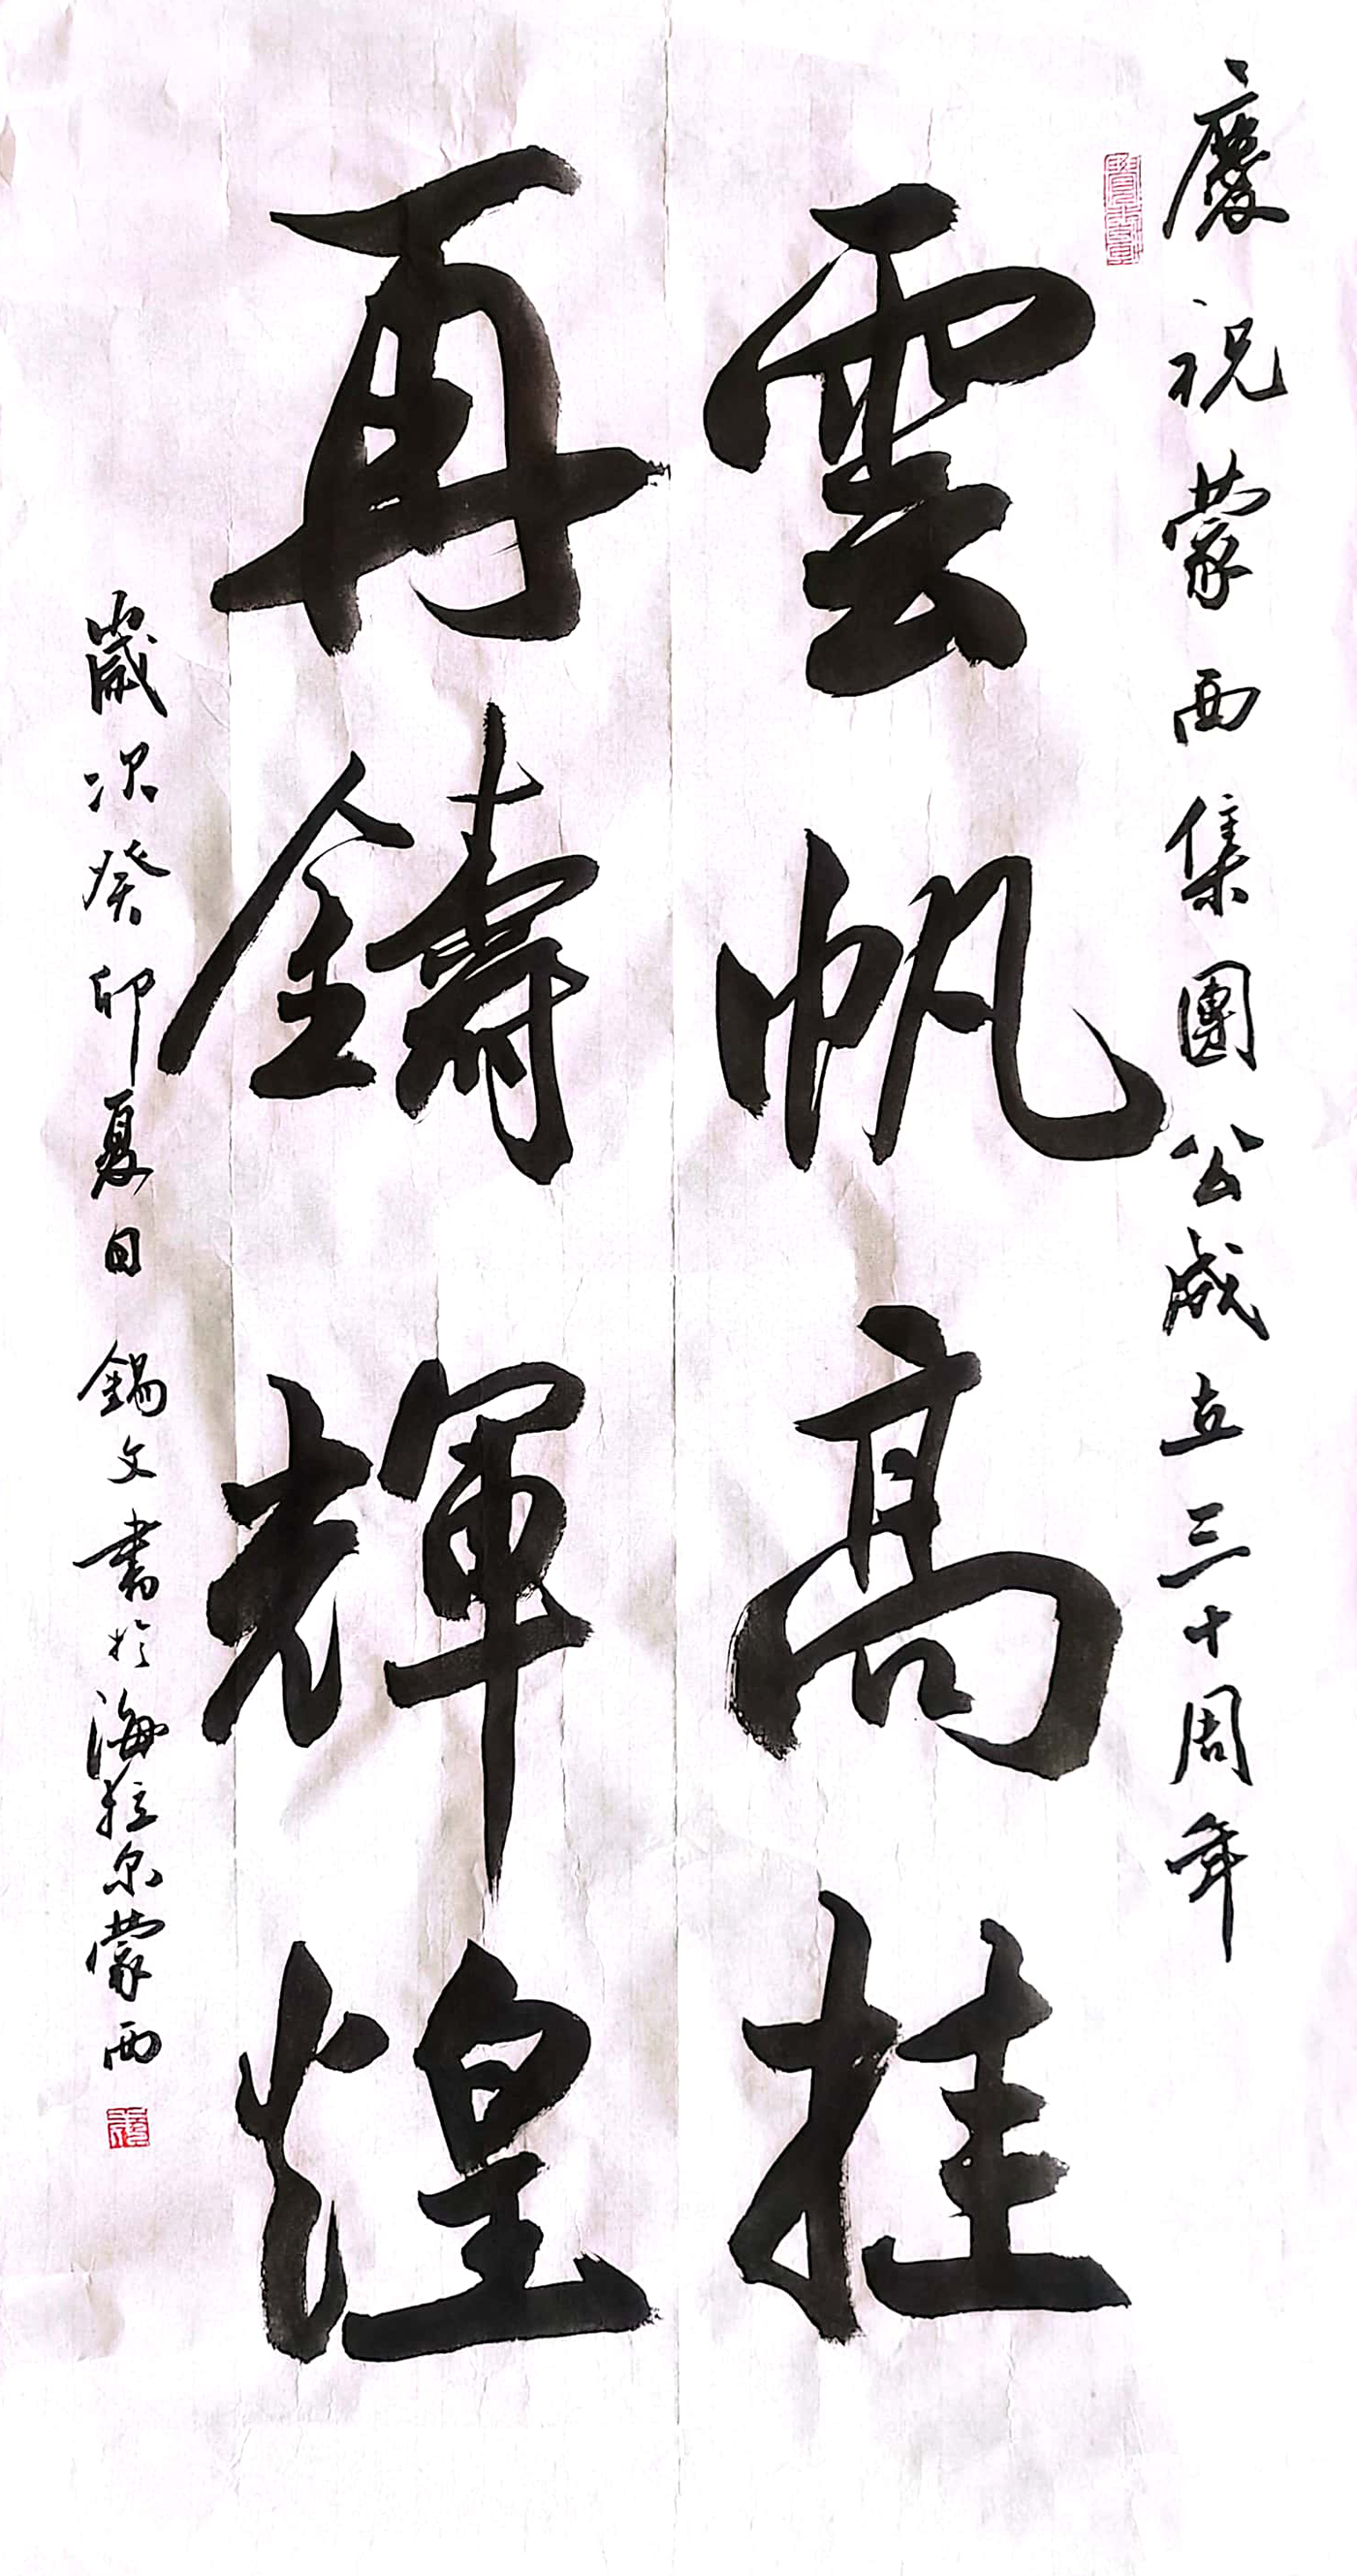 慶祝蒙西集團公成立三十周年
雲帆高挂
再鑄輝煌
歲次癸卯夏日 錫文書於海拉尔蒙西